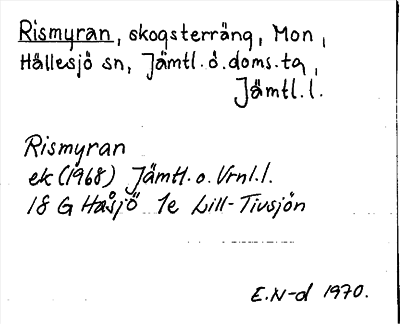 Rismyran, skogsterräng, Mon,
Hällesjö sn, Jämtl. ö. doms. tg,
Jämtl. l.
Rismyran
ek (1968) Jämtl. o. Vrnl. l.
18 G Hasjö 1e Lill-Tivsjön
E.N-d 1970.